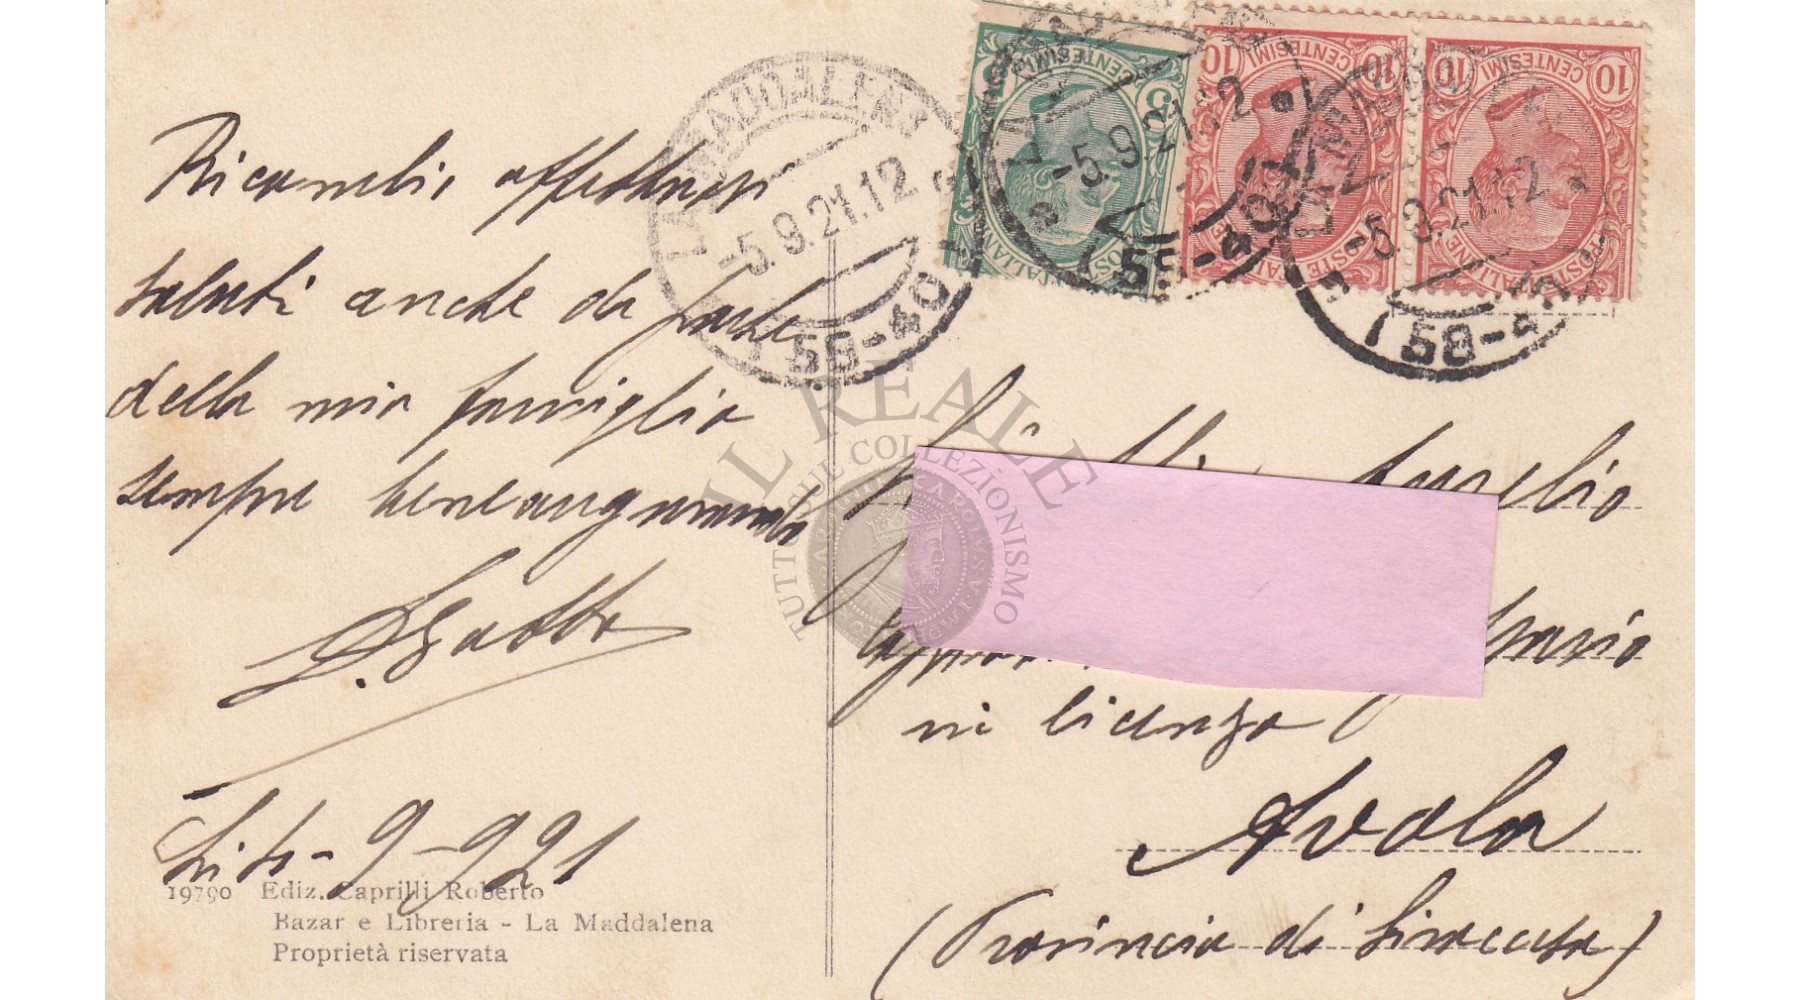 Ricambio affettuosi
saluti anche da parte
della mia famiglia
sempre beneaugurando
19790 Ediz. Caprilli Roberto
Bazar e Libreria - La Maddalena
Proprietà riservata
5 CENTESIMI 5
POSTE ITALIANE
10 CENTESIMI 10
POSTE ITALIANE
10 CENTESIMI 10
POSTE ITALIANE
LA MADDALENA
-5.9.21.12
(58-40)
-5.9.21.12
(58-40)
-5.9.21.12
(58-4
IL REALE
TUTTO SUL COLLEZIONISMO
Aurelio
in licenza
Avola
(Provincia di Siracusa)